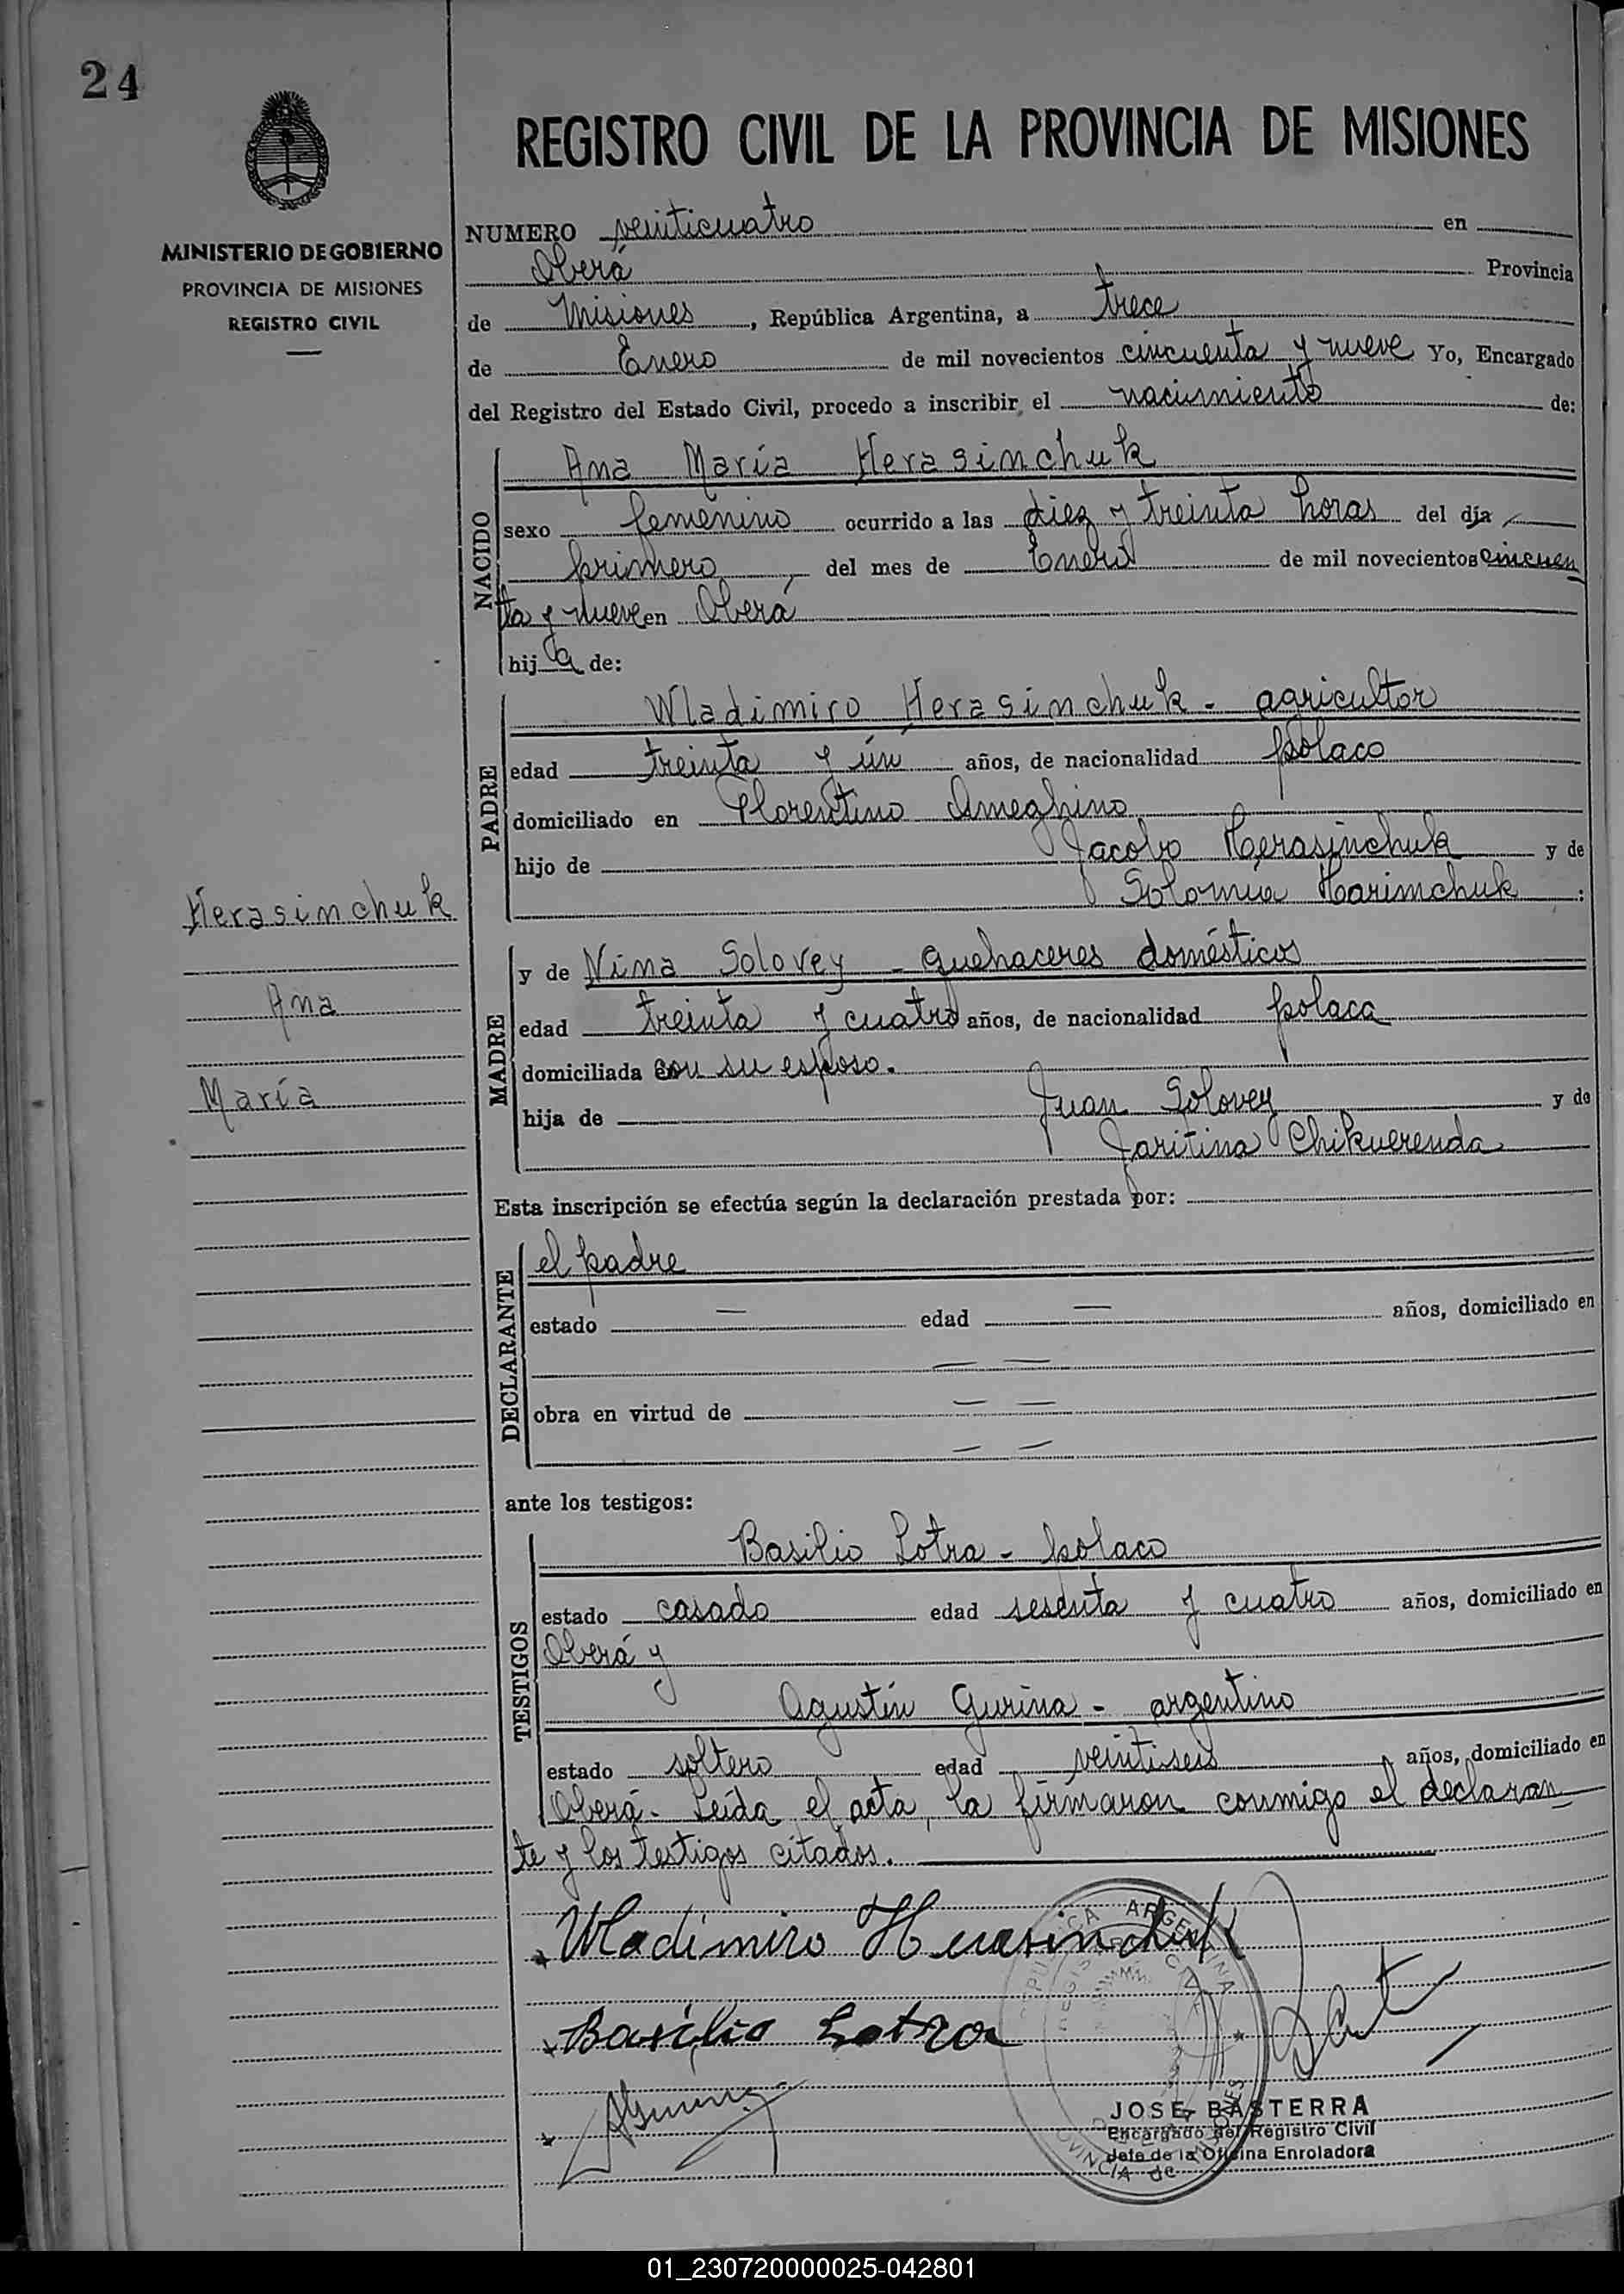 24
REGISTRO CIVIL DE LA PROVINCIA DE MISIONES
MINISTERIO DE GOBIERNO
PROVINCIA DE MISIONES
REGISTRO CIVIL
NUMERO veinticuatro en
Oberá Provincia
de Misiones, República Argentina, a trece
de Enero de mil novecientos cincuenta y nueve Yo, Encargado
del Registro del Estado Civil, procedo a inscribir el nacimiento de:
NACIDO
Ana María Herasinchuk
sexo femenino ocurrido a las diez y treinta horas del día
primero, del mes de Enero de mil novecientos cincuen
ta y nueve en Oberá
hija de:
PADRE
Wladimiro Herasinchuk - agricultor
edad treinta y ún años, de nacionalidad polaco
domiciliado en Florentino Ameghino
hijo de Jacobo Herasinchuk y de
Solomia Harimchuk :
Herasinchuk
Ana
María
MADRE
y de Nina Solovey - quehaceres domésticos
edad treinta y cuatro años, de nacionalidad polaca
domiciliada con su esposo.
hija de Juan Solovey y de
Jaritina Chikverenda
Esta inscripción se efectúa según la declaración prestada por:
DECLARANTE
el padre
estado — edad — años, domiciliado en
— —
obra en virtud de — —
— —
ante los testigos:
TESTIGOS
Basilio Lotra - polaco
estado casado edad sesenta y cuatro años, domiciliado en
Oberá y
Agustín Gurina - argentino
estado soltero edad veintiseis años, domiciliado en
Oberá - Leída el acta, la firmaron conmigo el declaran
te y los testigos citados.
Wladimiro Herasinchuk
Basilio Lotra
REPUBLICA ARGENTINA
REGISTRO CIVIL
PROVINCIA de MISIONES
JOSE BASTERRA
Encargado del Registro Civil
Jefe de la Oficina Enroladora
01_230720000025-042801